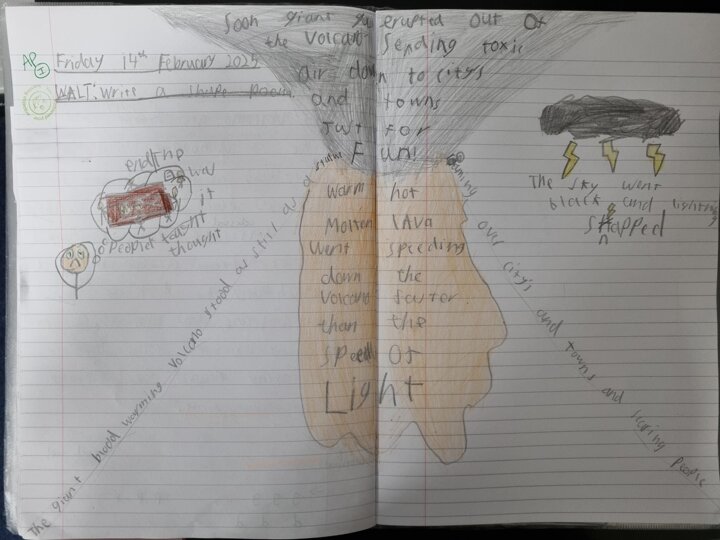 Soon giant erupted out of
the Volcano Sending toxic
Air down to city's
and towns
Just For
Fun!
AP
I
Friday 14th February 2025
WALT: write a shape poem.
warm hot
Molten lAVa
went speeding
down the
Volcano faster
than the
speed of
Light
The giant blood warming Volcano stood as still as a statue
looming over city's and towns and scaring people
The sky went
black and lightning
Snapped
end The
it
People taught
thought